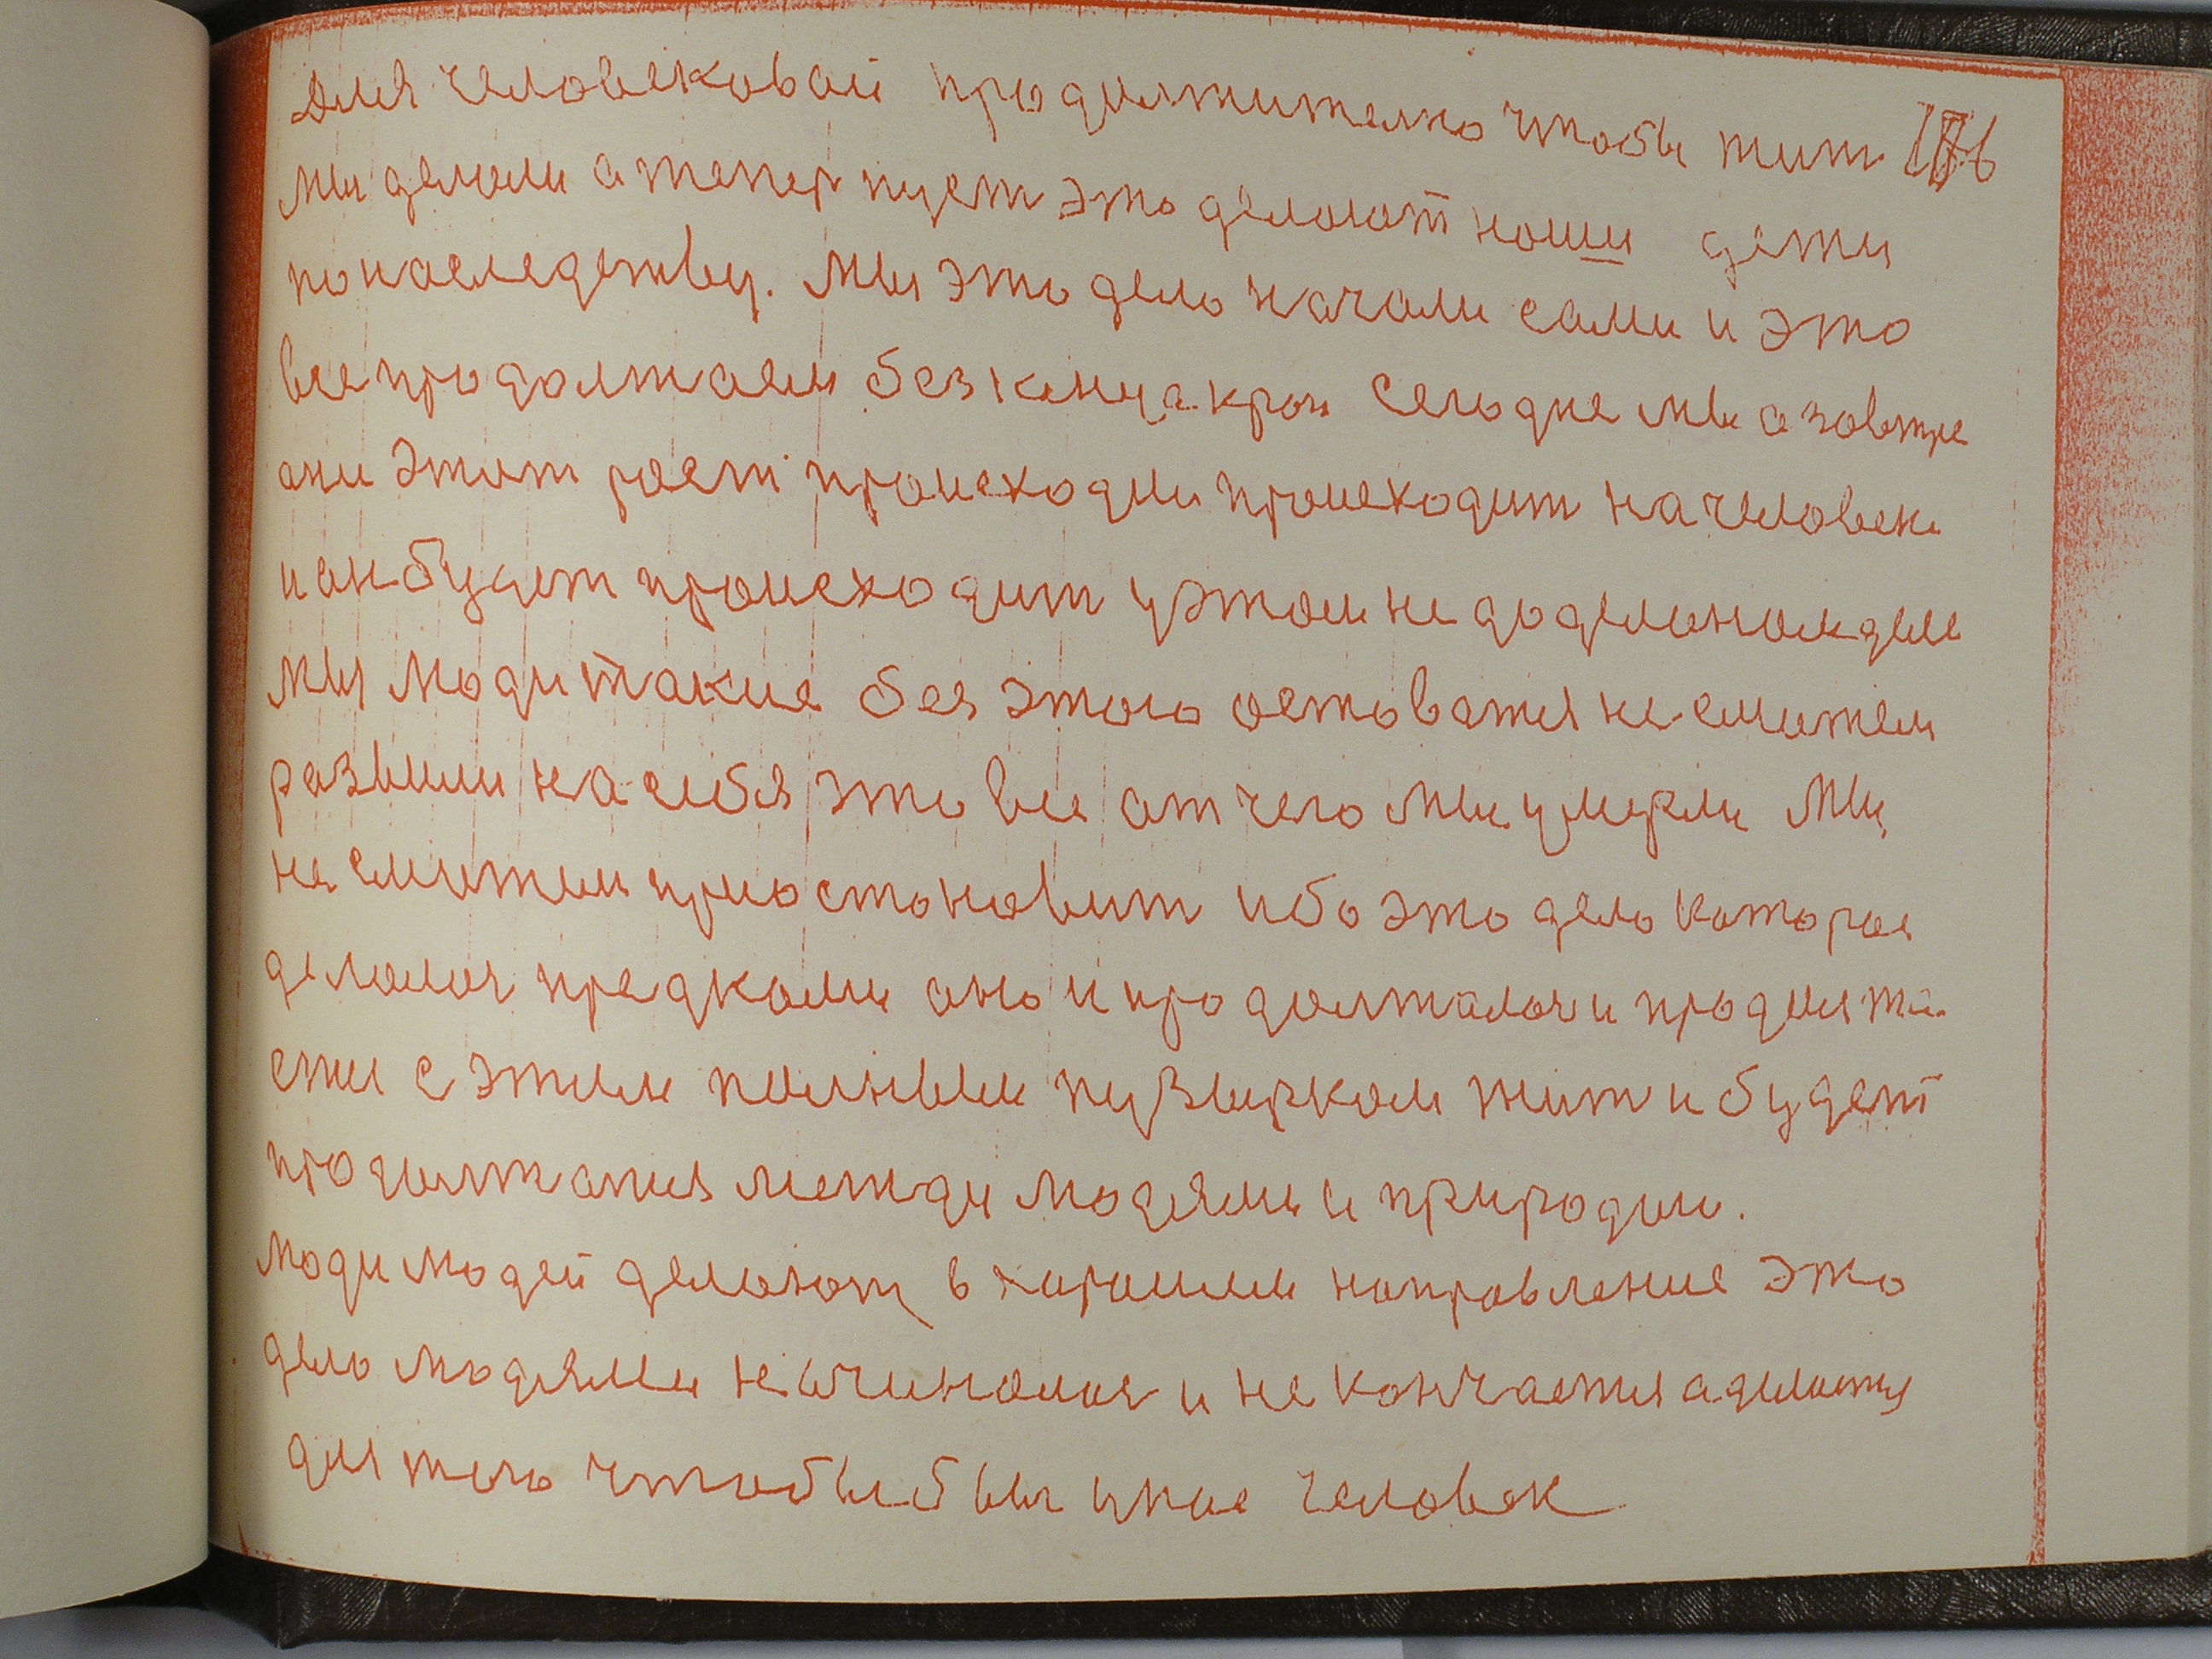 для человековой продолжително чтобы жит
мы делали а тепер пуст это делают наши дети
по наследству. Мы это дело начали сами и это
все продолжаем без конца края Сегодне мы а завтре
они этот рост происходил происходит на человеке
и он будет происходит у этом не доделаном деле
мы люди такие без этого оставатся не сможем
развили на себя это все от чего мы умерли Мы
не сможем приостоновит ибо это дело которое
делалос предками оно и продолжалос и продолжа
ется с этим полным пузырком жит и будет
продолжатся между людями и природои.
Люди людей делают в хорошем направление это
дело людями не вчиналос и не кончается а делается
для того чтобы был умне человек